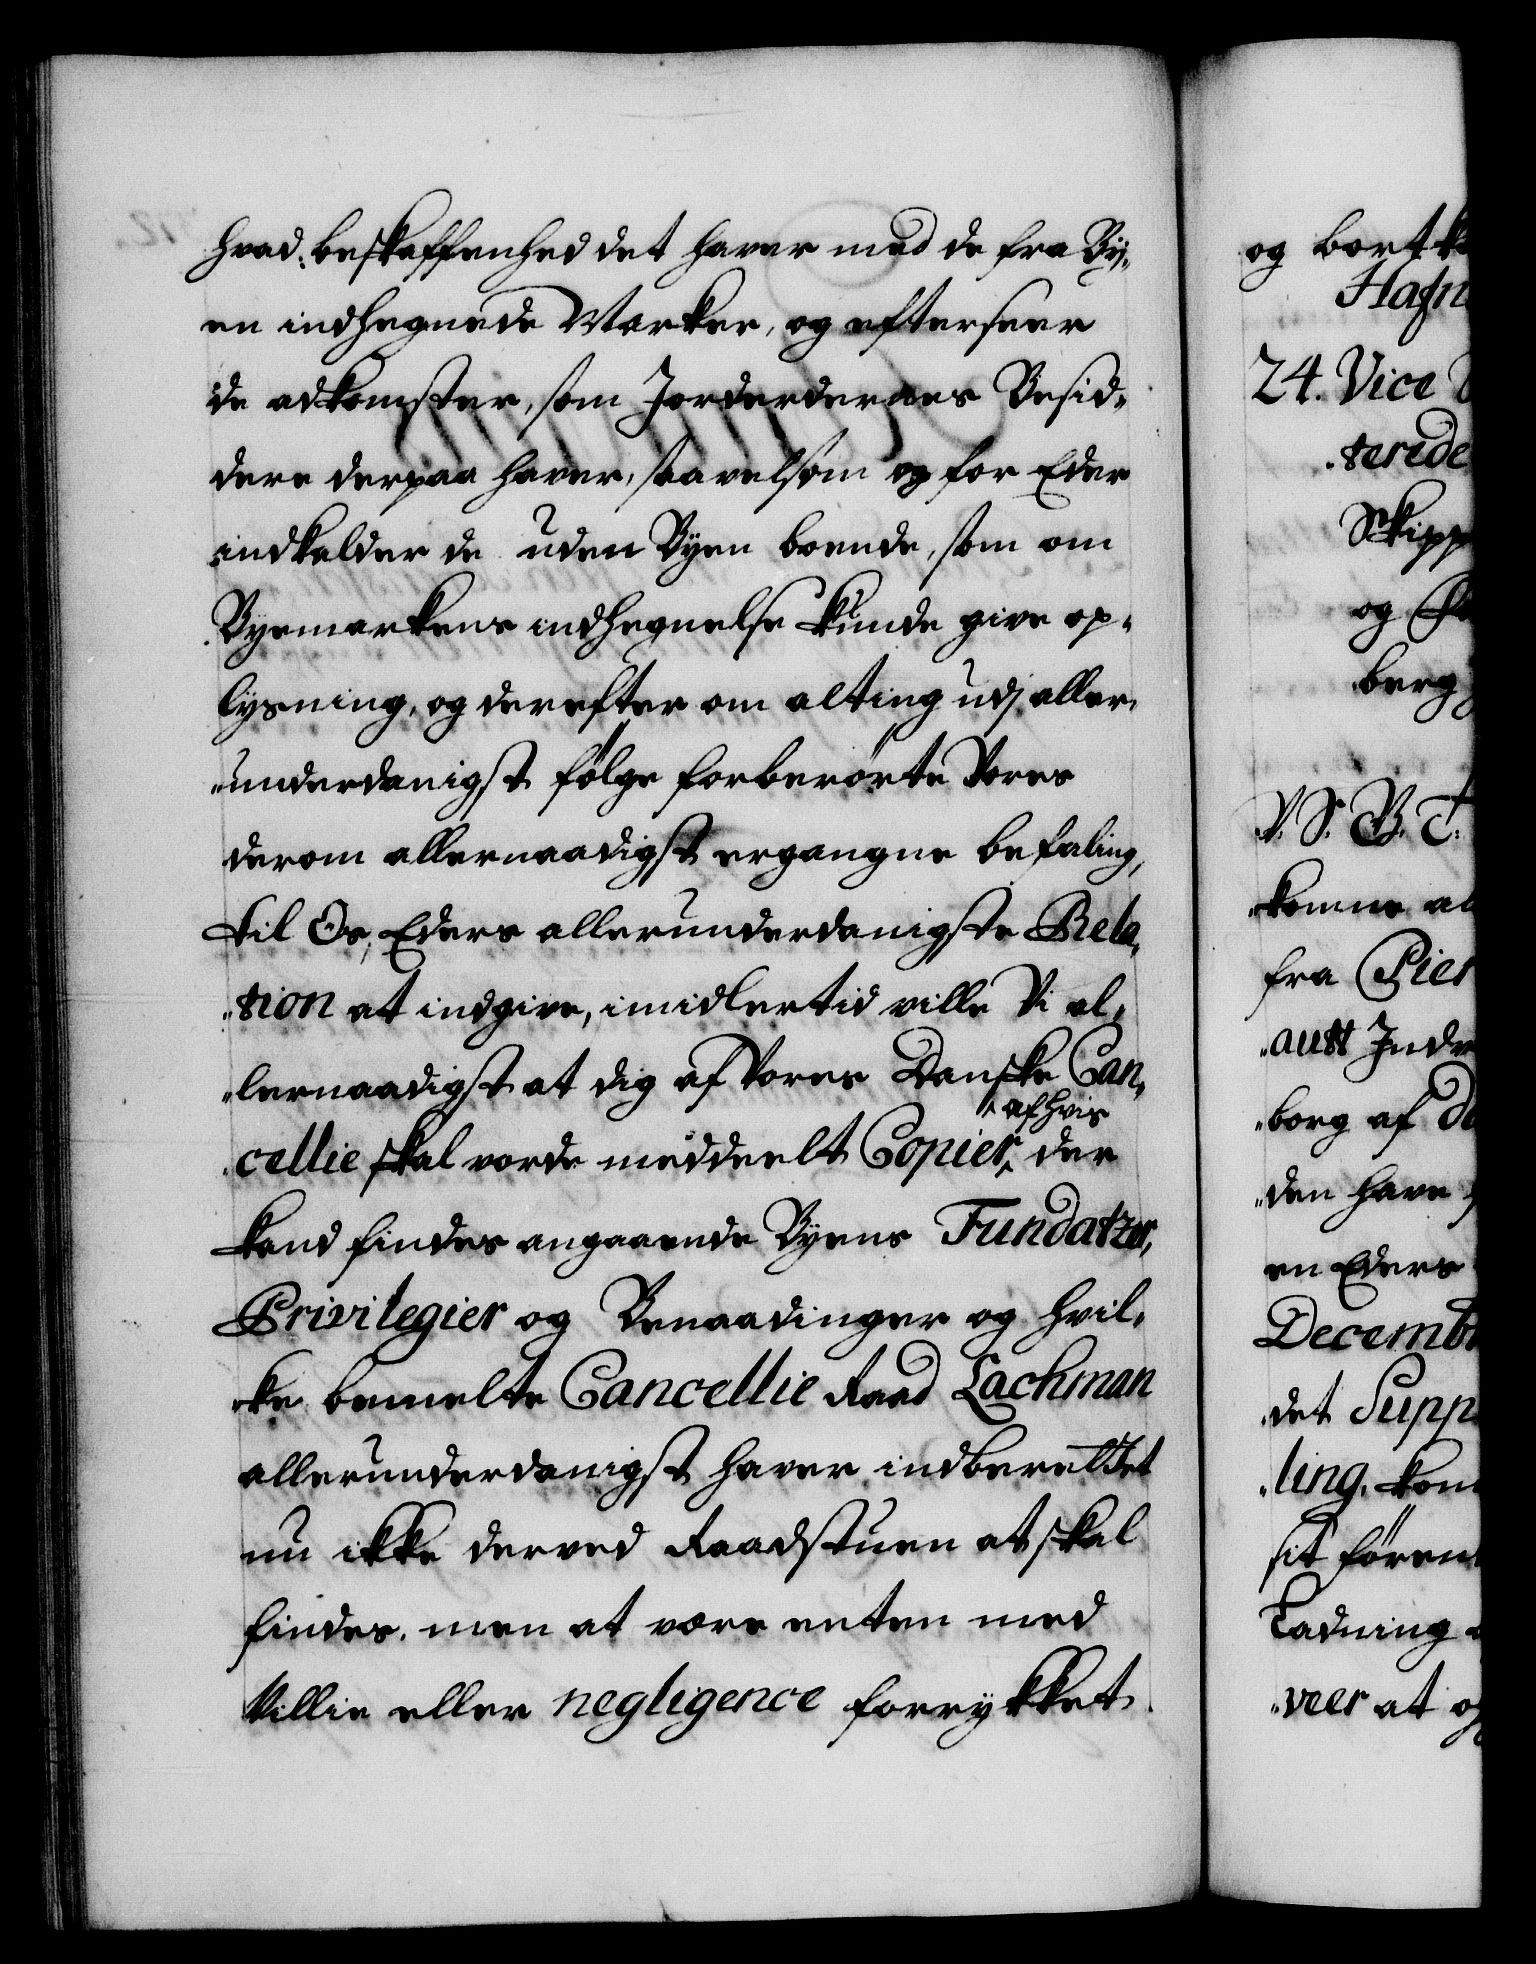 hvad beskaffenhed det haver med de fra By„
en indhegnede Marker, og efterseer
de adkomster, som Jorderdernes Besid„
dere derpaa haver, saavelsom og for Eder
indkalder de uden Byen boende, som om
Byemarkens indhegnelse kunde give op„
lysning, og derefter om alting udj aller„
„underdanigst følge forberørte Vores
derom allernaadigst ergangne befaling,
til Os, Eders allerunderdanigste Rela„
„tion at indgive, imidlertid ville Vi al„
„lernaadigst at dig af Vores Danske Can„
cellie skal vorde meddeelt Copier, af hvis der
kand findes angaaende Byens Fundatzer,
Privilegier og Benaadinger og hvil„
„ke bemelte Cancellie Raad Lachman
allerunderdanigst haver indberettet
nu ikke derved Raadstuen at skal
findes, men at være enten med
Villie eller negligence forrykket.
og bortk
Hafn
24. Vice
teride
Skipp
og
berg
V. S. B. T.
komne al
fra Pier
autt Inde
„borg af
„den have
en Eders
Decemb
det Supp
ling, kom
sit føren
Ladning
„veer at og